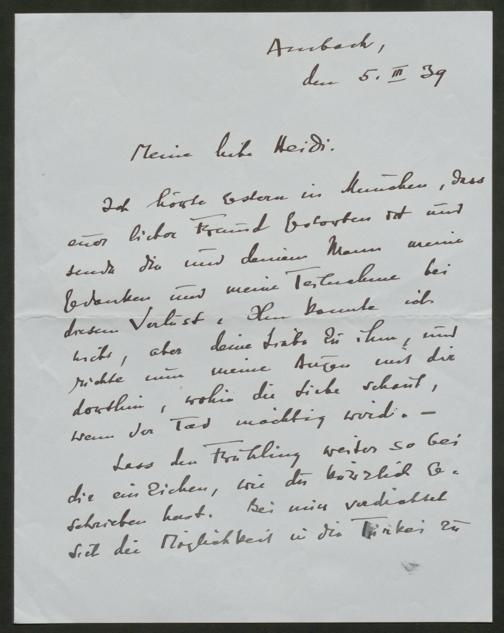 Ambach,
den 5. III 39
Meine liebe Heidi.
Ich hörte gestern in München, dass
euer lieber Freund gestorben ist und
sende dir und deinem Mann meine
Gedanken und meine Teilnahme bei
diesem Verlust. Ihn kannte ich
nicht, aber deine Liebe zu ihm, und
richte nun meine Augen mit dir
dorthin, wohin die Liebe schaut,
wenn der Tod mächtig wird. —
Lass den Frühling weiter so bei
dir einziehen, wie du kürzlich ge-
schrieben hast. Bei mir verdichtet
sich die Möglichkeit in die Türkei zu